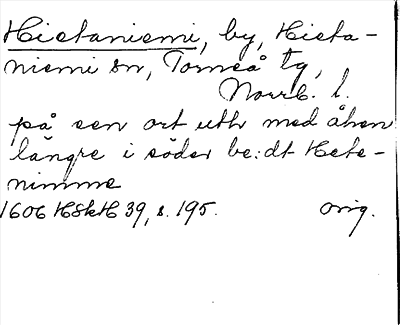 Hietaniemi, by, Hieta-
niemi sn, Torneå tg,
Norrb. l.
på een ort uthr med åhen
längre i söder be:dt Hete-
nimme
1606 HSkH 39, s. 195. orig.